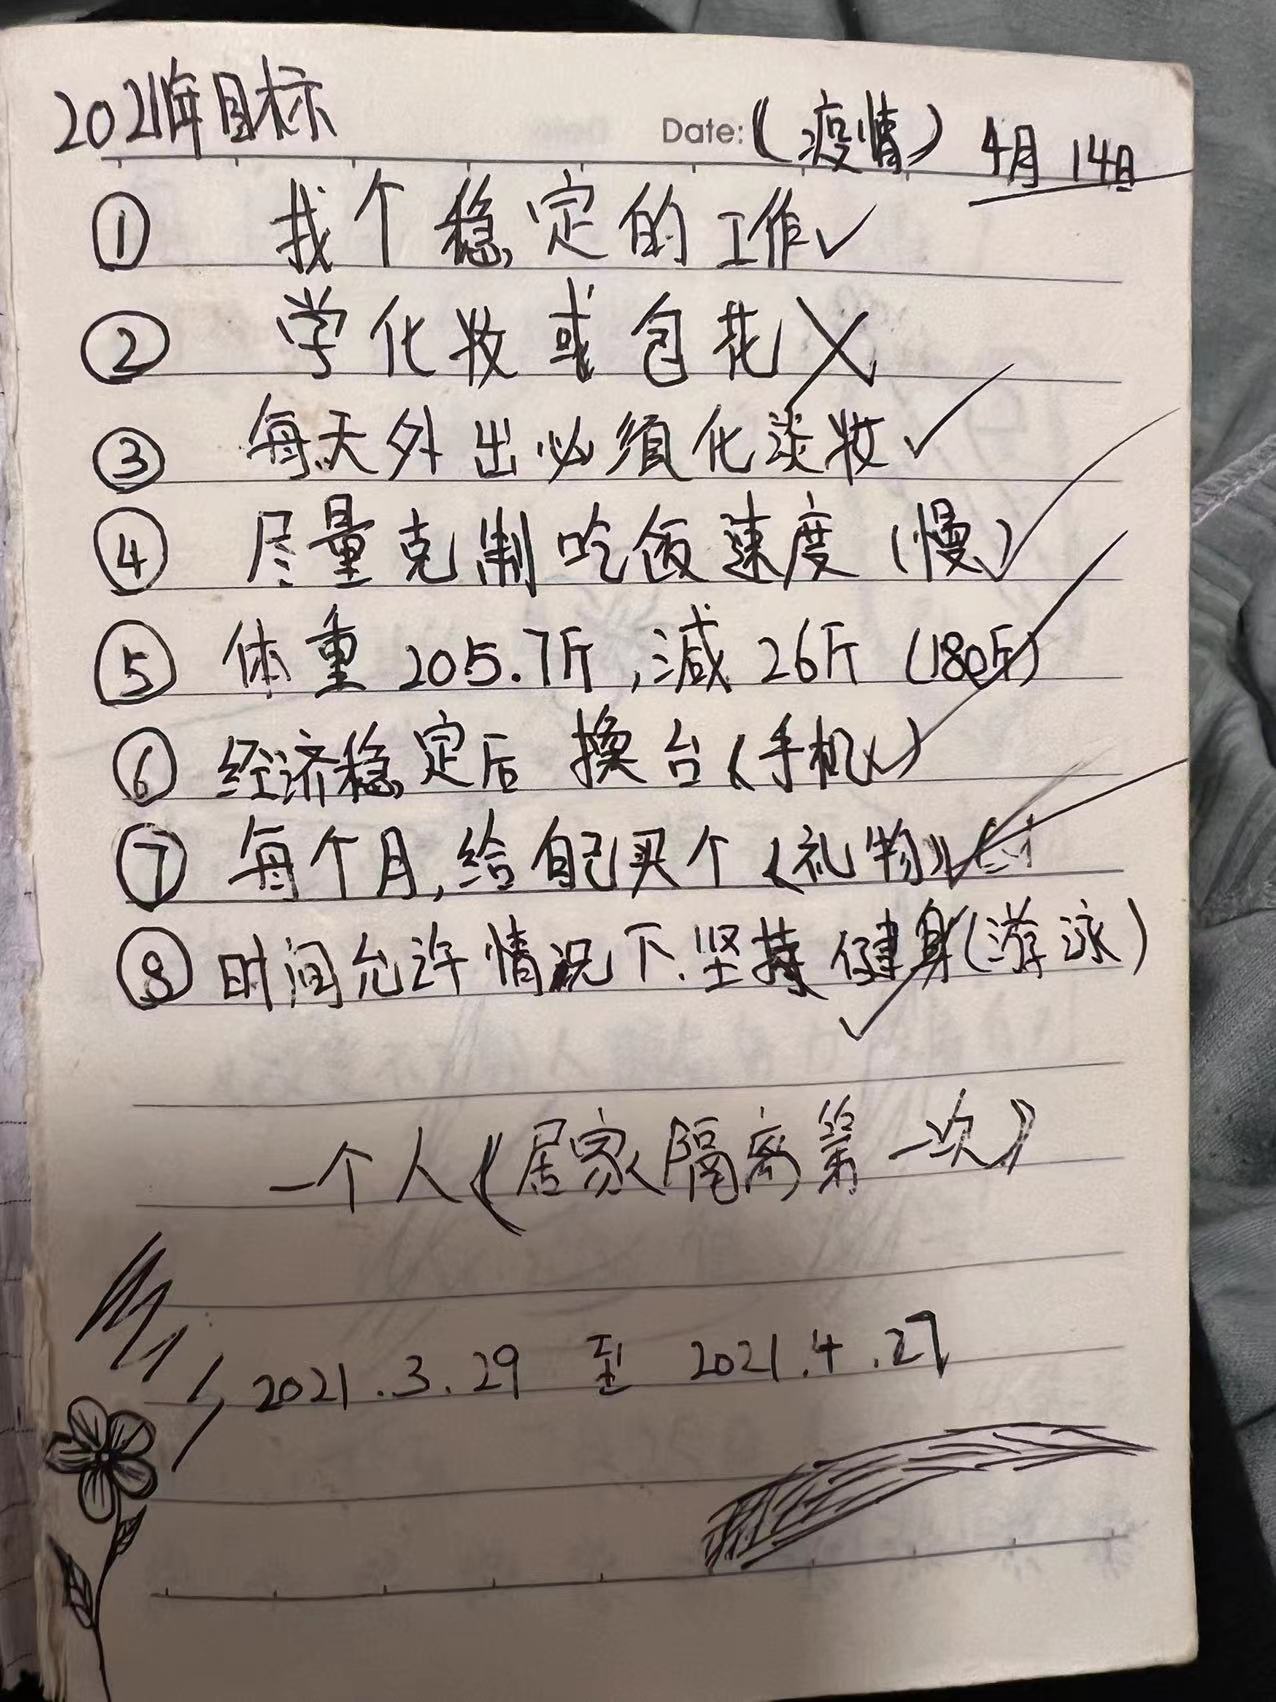 2021年目标
Date:《疫情》 4月14日
① 找个稳定的工作✓
② 学化妆或包花╳
③ 每天外出必须化淡妆✓
④ 尽量克制吃饭速度（慢）✓
⑤ 体重205.7斤,减26斤（180斤）
⑥ 经济稳定后 换台《手机》✓
⑦ 每个月,给自己买个《礼物》✓
⑧ 时间允许情况下.坚持健身（游泳）✓
一个人《居家隔离第一次》
2021.3.29 至 2021.4.27